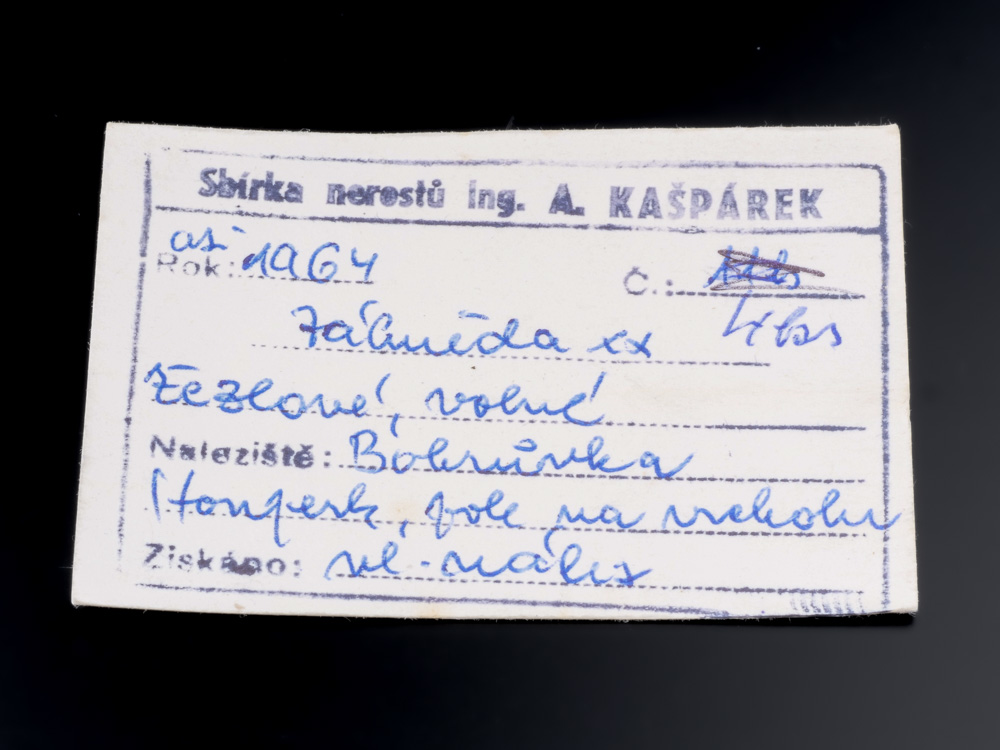 Sbírka nerostů Ing. A. KAŠPÁREK
asi
Rok: 1964 Č.:
Záhněda xx
Žezlové, volné
Naleziště: Bobrůvka
Honperk, pole na vrcholu
Získáno: vl. nález